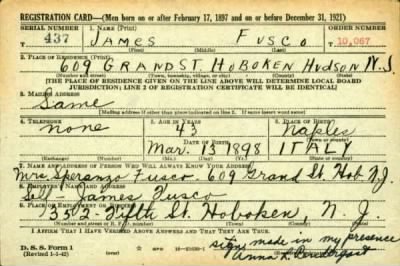 REGISTRATION CARD—(Men born on or after February 17, 1897 and on or before December 31, 1921)
SERIAL NUMBER 1. NAME (Print) ORDER NUMBER
437 JAMES FUSCO 10,067
(First) (Middle) (Last)
2. PLACE OF RESIDENCE (Print)
609 GRAND ST. HOBOKEN HUDSON N.J.
(Number and street) (Town, township, village, or city) (County) (State)
[THE PLACE OF RESIDENCE GIVEN ON THE LINE ABOVE WILL DETERMINE LOCAL BOARD
JURISDICTION; LINE 2 OF REGISTRATION CERTIFICATE WILL BE IDENTICAL]
3. MAILING ADDRESS
Same
[Mailing address if other than place indicated on line 2. If same insert word same]
4. TELEPHONE 5. AGE IN YEARS 6. PLACE OF BIRTH
none 43 Naples
DATE OF BIRTH (Town or county)
Mar. 13 1898 ITALY
(Exchange) (Number) (Mo.) (Day) (Yr.) (State or country)
7. NAME AND ADDRESS OF PERSON WHO WILL ALWAYS KNOW YOUR ADDRESS
Mrs Speranzo Fusco 609 Grand St. Hob N.J.
8. EMPLOYER'S NAME AND ADDRESS
Self - James Fusco
9. PLACE OF EMPLOYMENT OR BUSINESS
1352 - Fifth St. Hoboken, N. J.
(Number and street or R. F. D. number) (Town) (County) (State)
I AFFIRM THAT I HAVE VERIFIED ABOVE ANSWERS AND THAT THEY ARE TRUE.
sign made in my presence
D. S. S. Form 1 GPO
(Revised 1-1-42) Anna